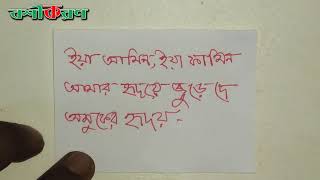 বশীকরণ
ইয়া আমিন, ইয়া ফামিন
আমার হৃদয়ে জুড়ে দে
অমুকের হৃদয় -